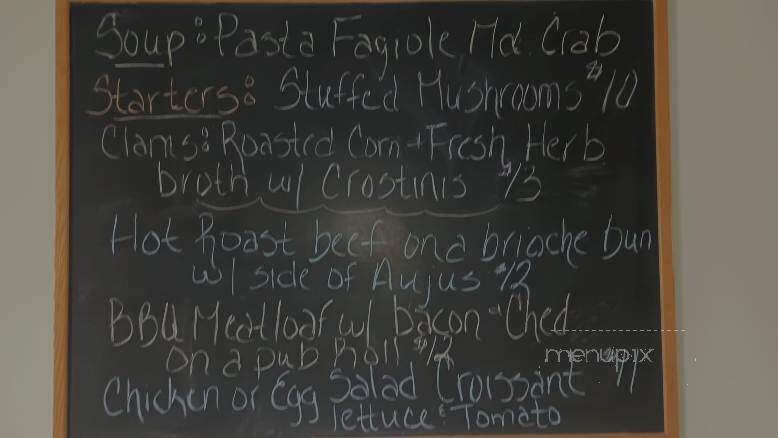 Soup: Pasta Fagiole, Md. Crab
Starters: Stuffed Mushrooms $10
Clams: Roasted Corn + Fresh Herb
broth w/ Crostinis $13
Hot Roast beef on a brioche bun
w/ side of Aujus $12
BBQ Meatloaf w/ bacon + Ched
on a pub Roll $12
menupix
Chicken or Egg Salad Croissant $11
lettuce & Tomato